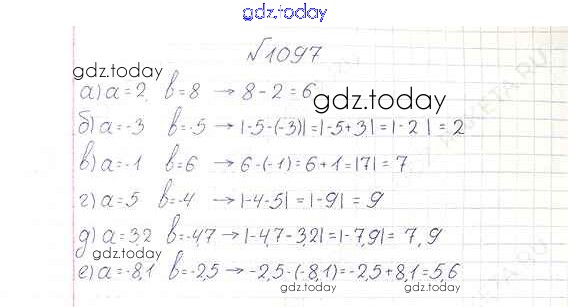 gdz.today
№1097
gdz.today
а) a=2, b=8 → 8-2=6
gdz.today
б) a=-3 b=-5 → |-5-(-3)|=|-5+3|=|-2|=2
в) a=-1 b=6 → 6-(-1)=6+1=|7|=7
г) a=5 b=-4 → |-4-5|=|-9|=9
gdz.today
gdz.today
д) a=3,2 b=-4,7 → |-4,7-3,2|=|-7,9|=7,9
gdz.today
е) a=-8,1 b=-2,5 → -2,5-(-8,1)=-2,5+8,1=5,6
gdz.today